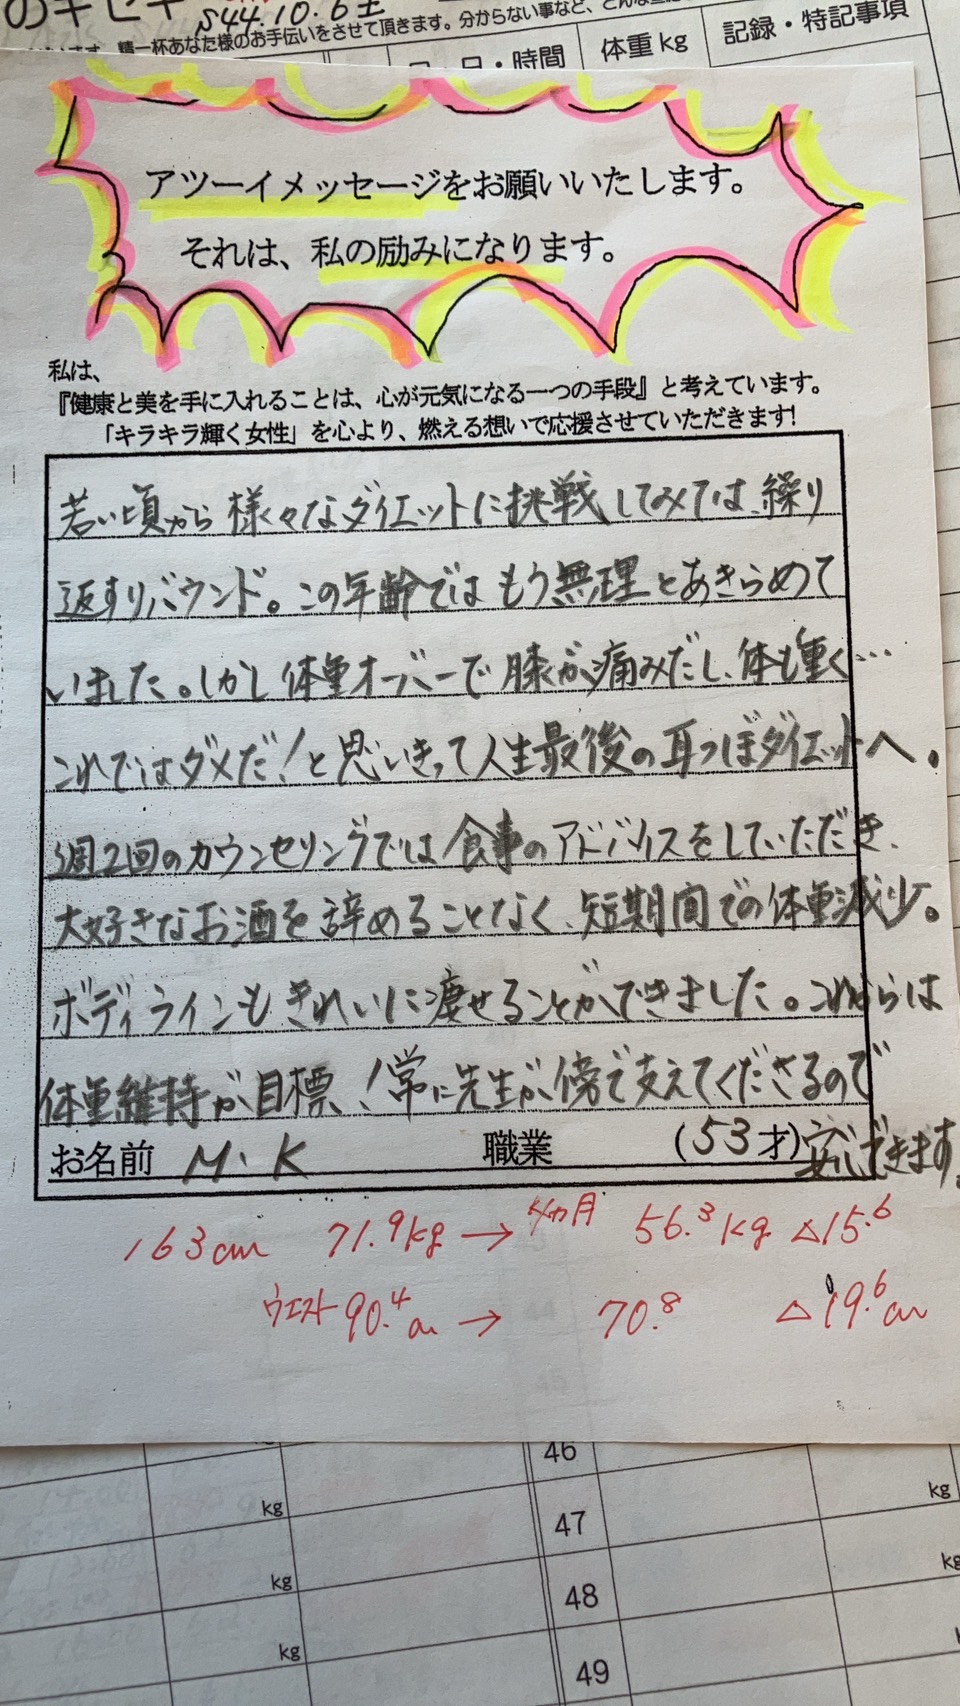 のキセキ
S44.10.6土
精一杯あなた様のお手伝いをさせて頂きます。分からない事など、
日・時間
体重 kg
記録・特記事項
アツーイメッセージをお願いいたします。
それは、私の励みになります。
私は、
『健康と美を手に入れることは、心が元気になる一つの手段』と考えています。
「キラキラ輝く女性」を心より、燃える想いで応援させていただきます!
若い頃から様々なダイエットに挑戦してみては、繰り
返すリバウンド。この年齢ではもう無理とあきらめて
いました。しかし体重オーバーで膝が痛みだし、体も重く…
これではダメだ!と思いきって人生最後の耳つぼダイエットへ。
週2回のカウンセリングでは食事のアドバイスをしていただき、
大好きなお酒を辞めることなく、短期間での体重減少。
ボディラインもきれいに痩せることができました。これからは
体重維持が目標!常に先生が傍で支えてくださるので
安心できます。
お名前 M.K 職業 (53才)
163cm 71.9kg → ヶ月 56.3kg △15.6
ウエスト90.4cm → 70.8 △19.6cm
46
kg
kg
47
kg
kg
48
kg
49